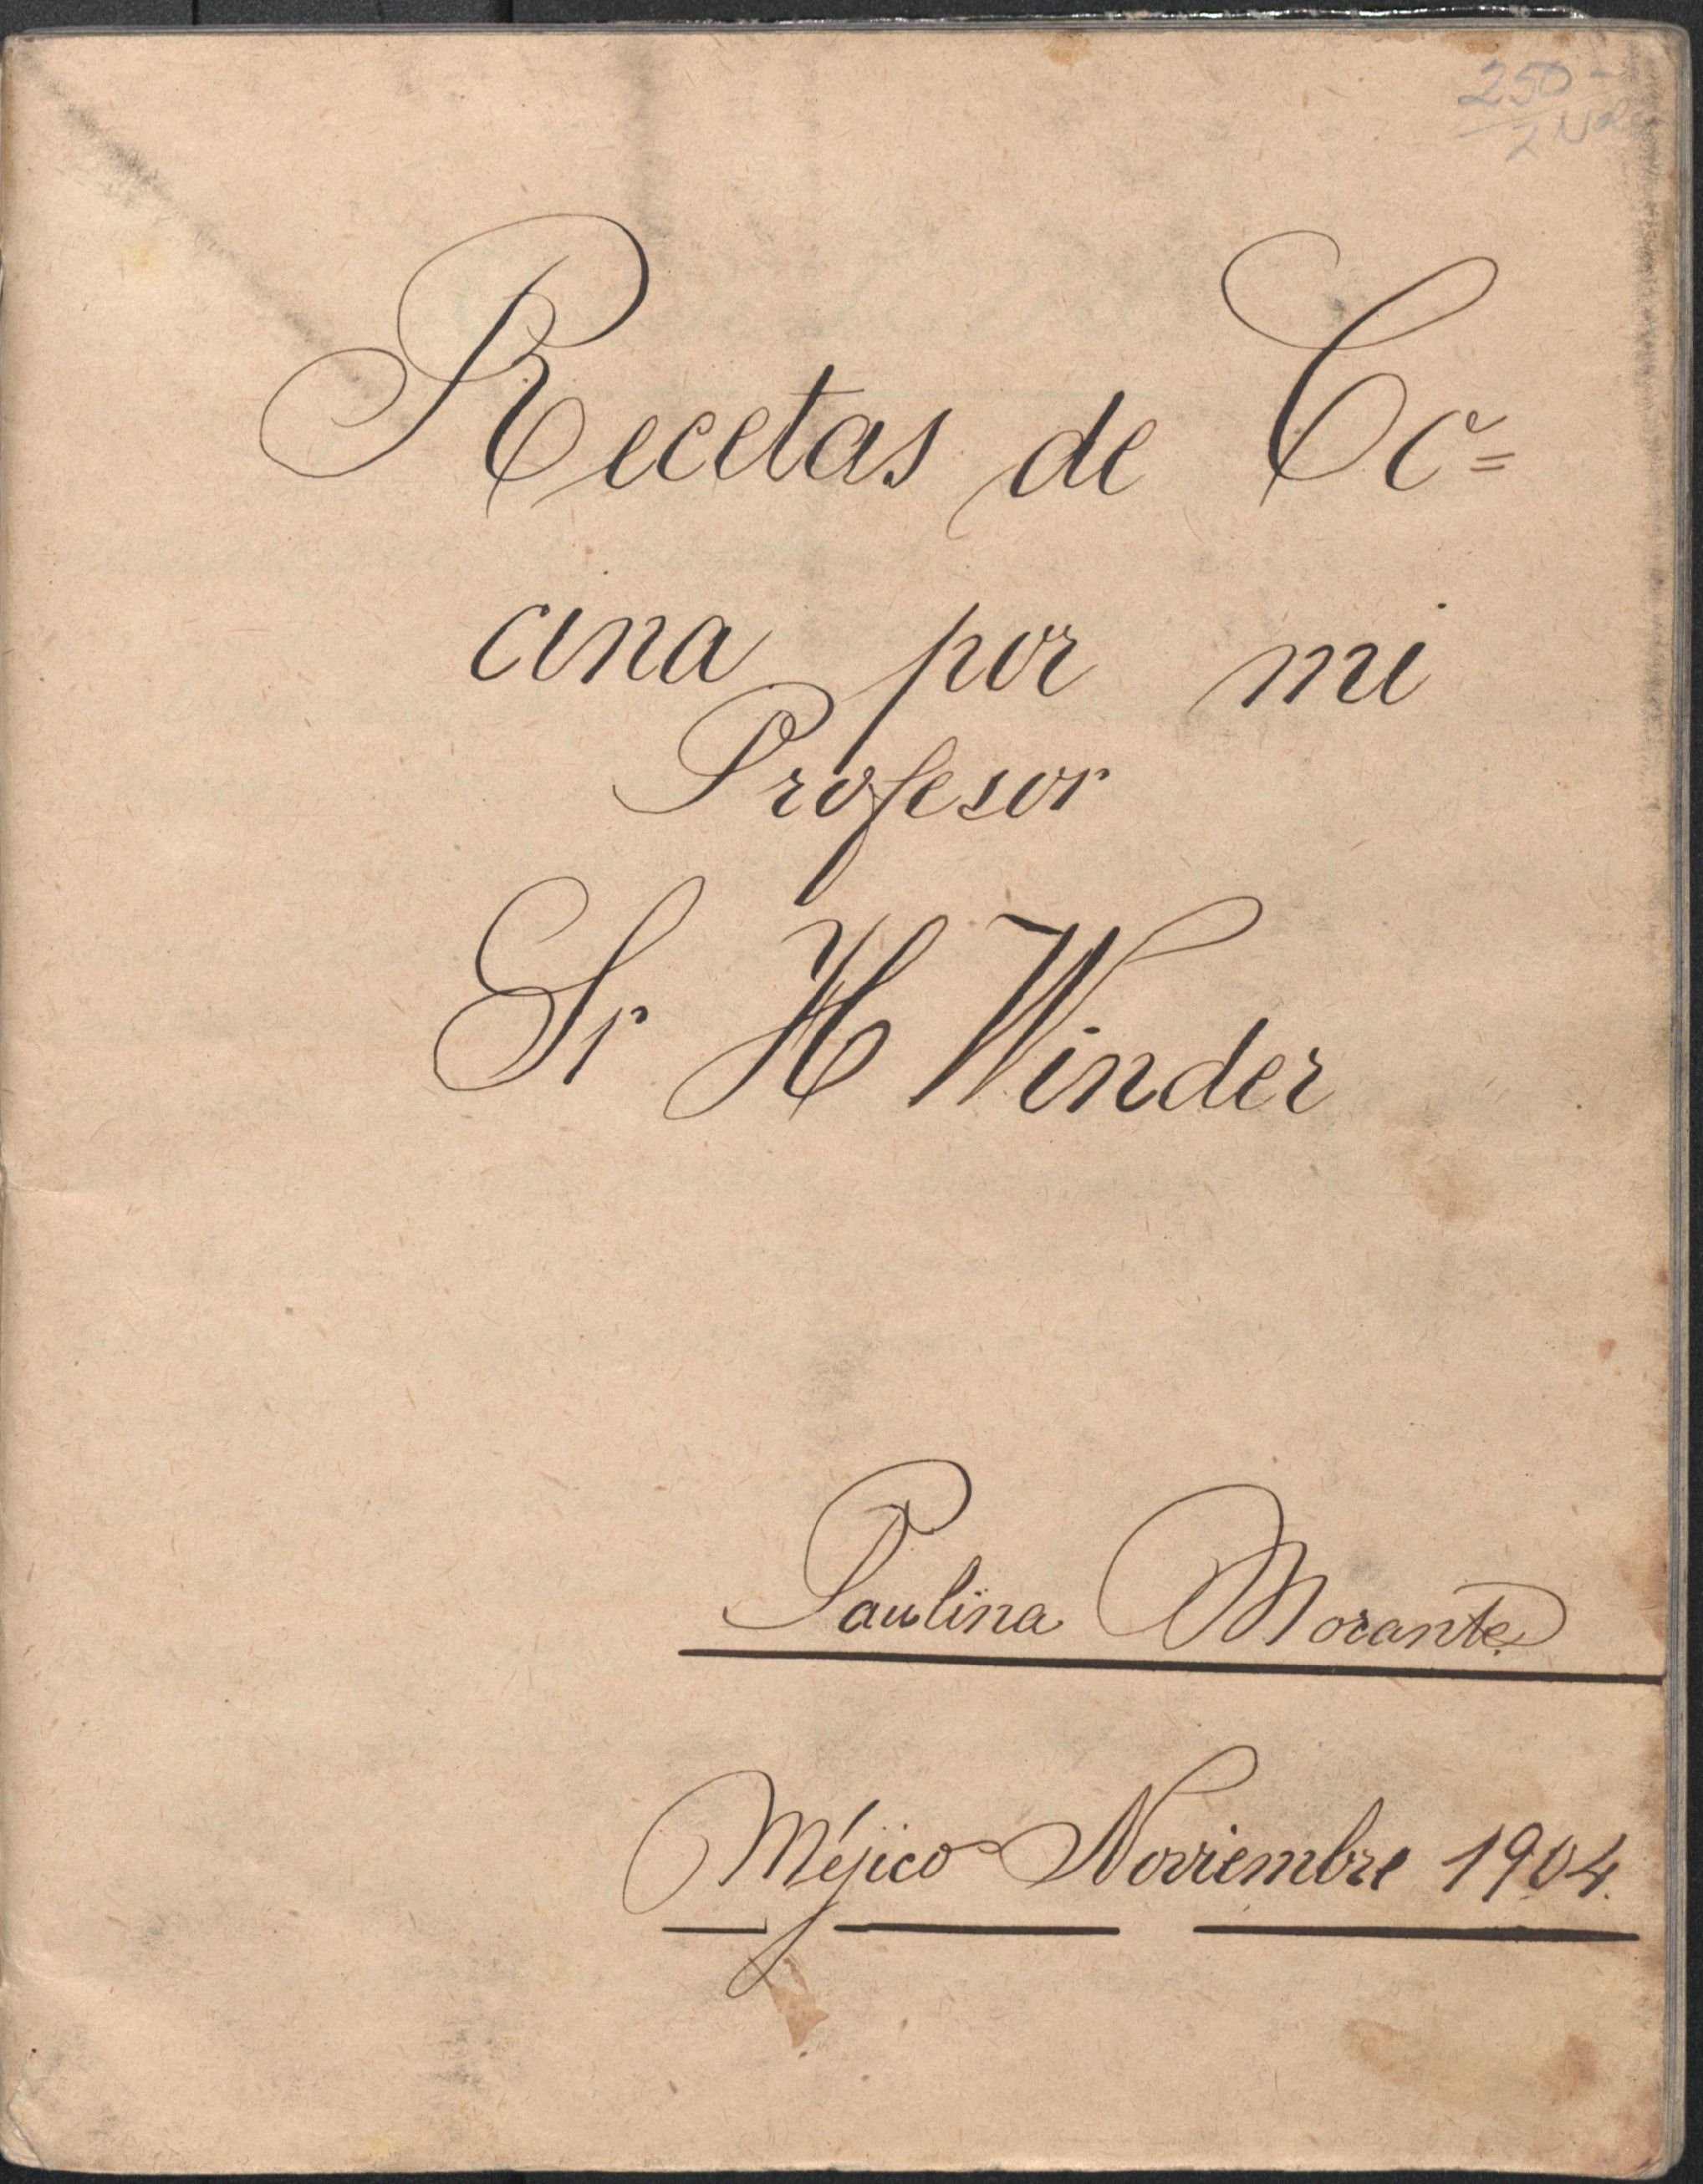 250-
2 Vols
Recetas de Co=
cina por mi
Profesor
Sr H Winder
Paulina Morante
Méjico Noviembre 1904.